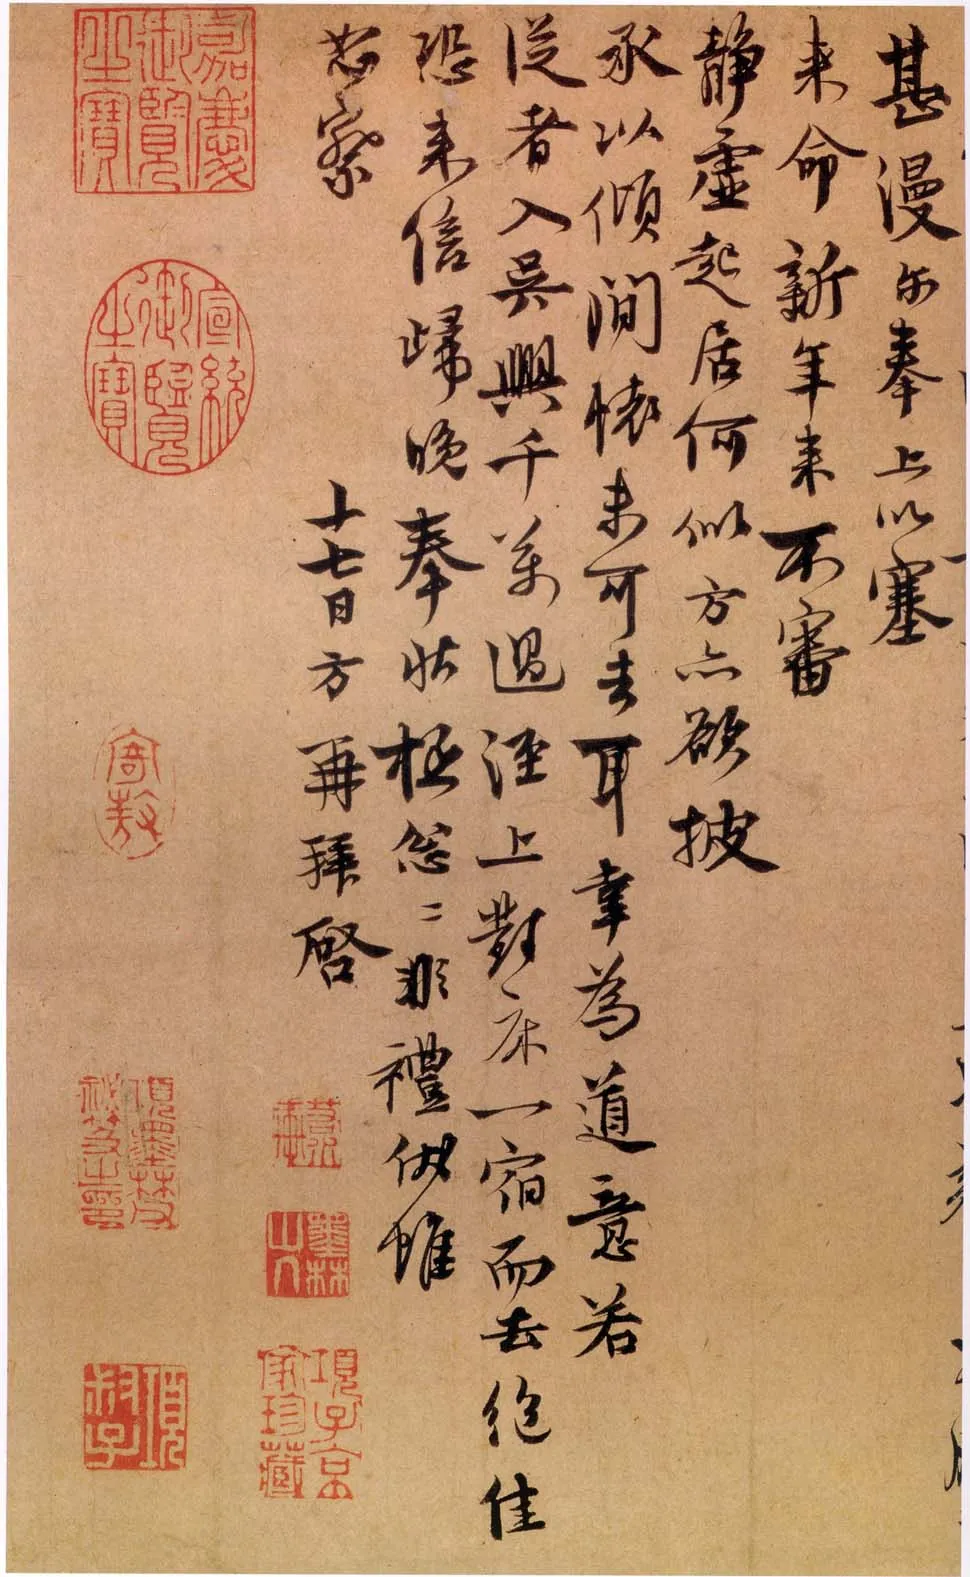 甚漫尓奉上以塞
来命新年来不審
静虚起居何似方亦欲披
承以傾澗懷未可去耳幸為道意若
從者入吳興千萬過涇上對床一宿而去絶佳
恐来信歸晚奉狀極怱二非禮他惟
察
十七日方再拜啓
嘉慶御覽之寶
宣統御覽之寶
項墨林父秘笈之印
墨林山人
項子京家珍藏
項叔子